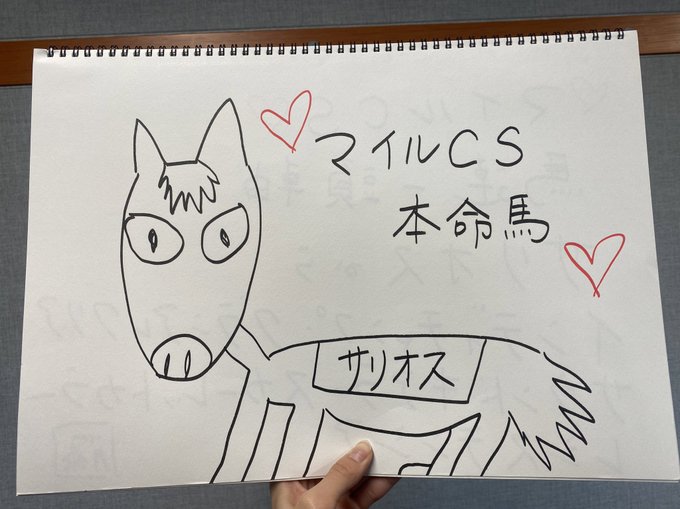 マイルCS
本命馬
サリオス